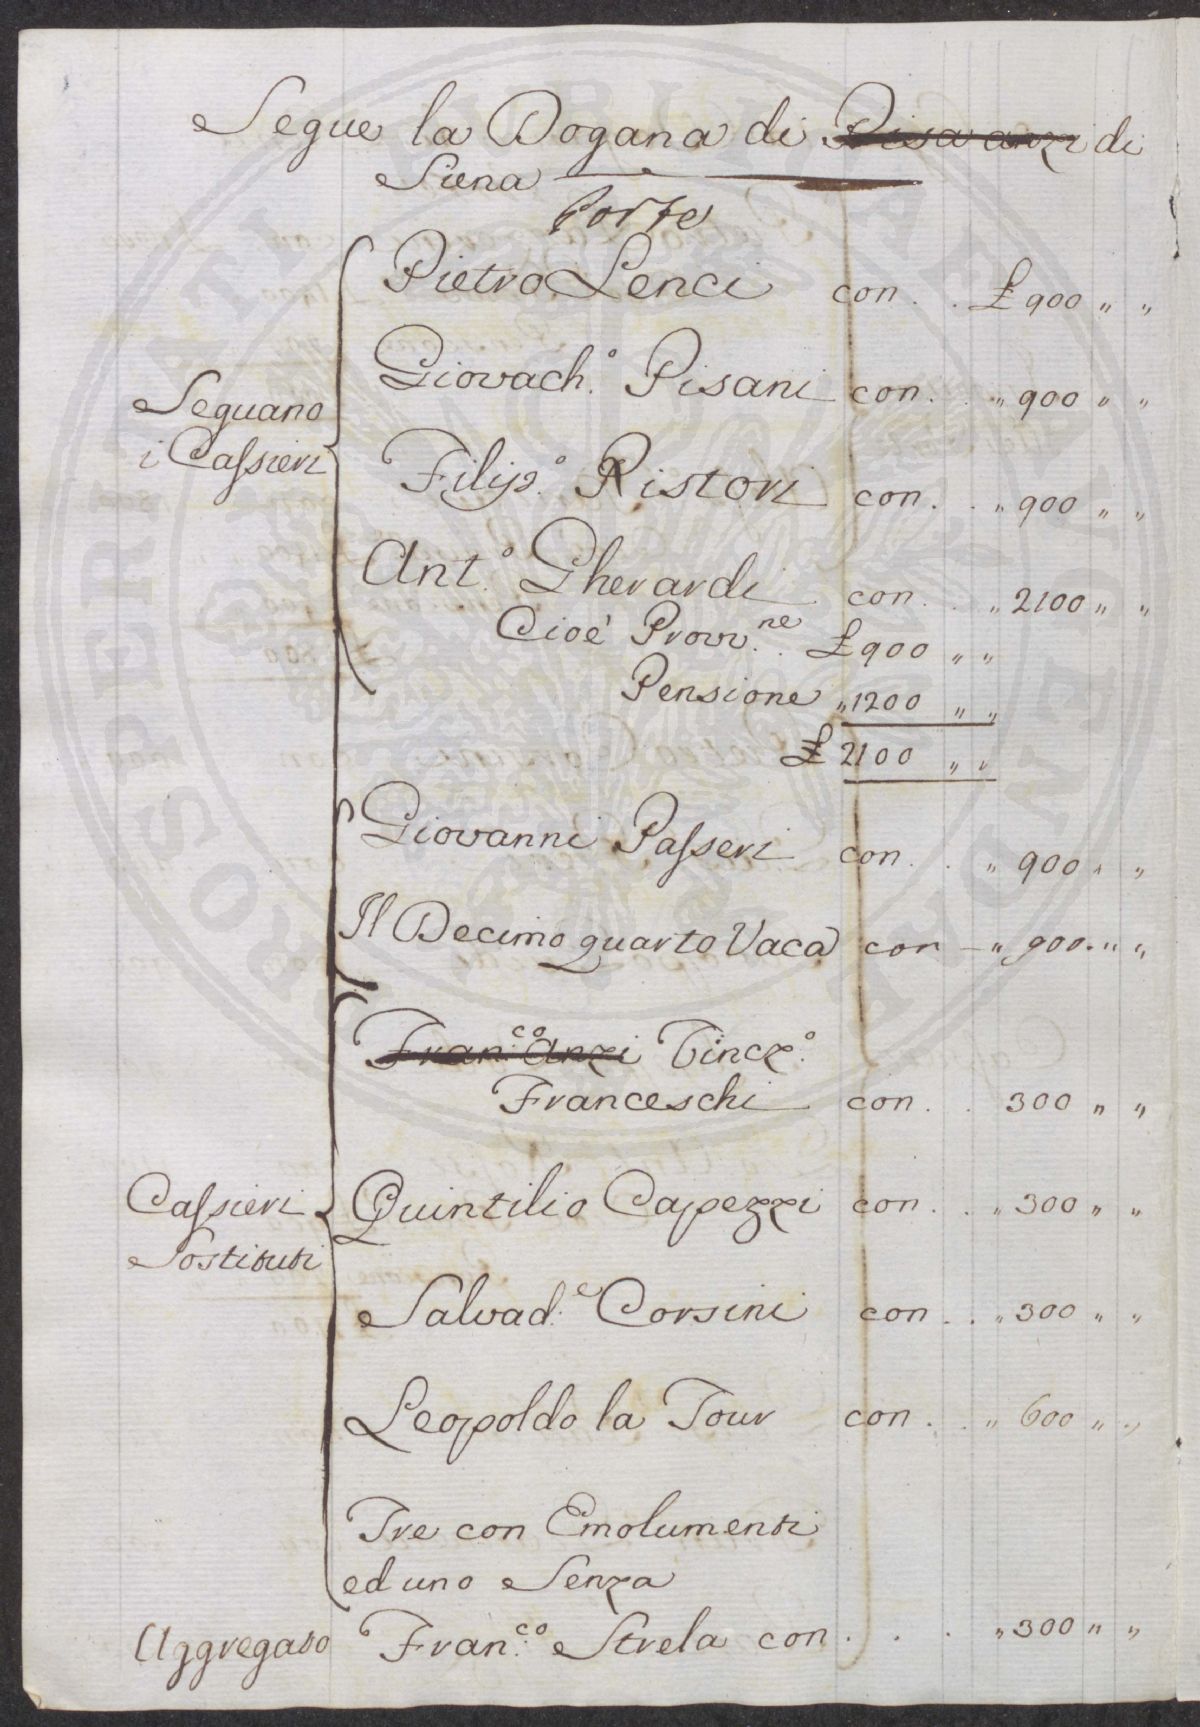 Segue la Dogana di Pisa anzi di
Siena
Porte
Pietro Lenci con . . £ 900 " "
Giovach.º Pisani con . . " 900 " "
Seguano
i Cassieri
Filip.º Ristori con . . " 900 " "
Ant.º Gherardi con . . " 2100 " "
Cioè Provv.ne £ 900 " "
Pensione " 1200 " "
£ 2100 " "
Giovanni Passeri con . . " 900 " "
Il Decimo quarto Vaca con - " 900 " "
Fran.co Anzi Vincz.º
Franceschi con . . 300 " "
Cassieri
Sostituti
Quintilio Capezzi con . . " 300 " "
Salvad.e Corsini con . . " 300 " "
Leopoldo la Tour con . . " 600 " "
Tre con Emolumenti
ed uno Senza
Aggregato Fran.co Strela con . . . " 300 " "
PROSPERITATI PUBLICAE AUGENDAE